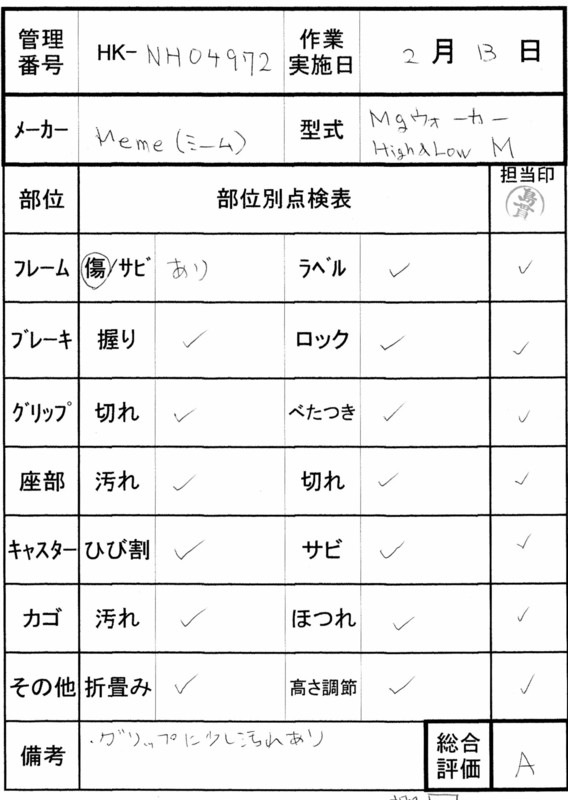 管理番号 HK-NH04972 作業実施日 2月13日
メーカー Meme(ミーム) 型式 Mgウォーカー High&Low M
部位 部位別点検表 担当印
フレーム 傷/サビ あり ラベル ✓ ✓
ブレーキ 握り ✓ ロック ✓ ✓
グリップ 切れ ✓ べたつき ✓ ✓
座部 汚れ ✓ 切れ ✓ ✓
キャスター ひび割 ✓ サビ ✓ ✓
カゴ 汚れ ✓ ほつれ ✓ ✓
その他 折畳み ✓ 高さ調節 ✓ ✓
備考 ・グリップに少し汚れあり 総合評価 A